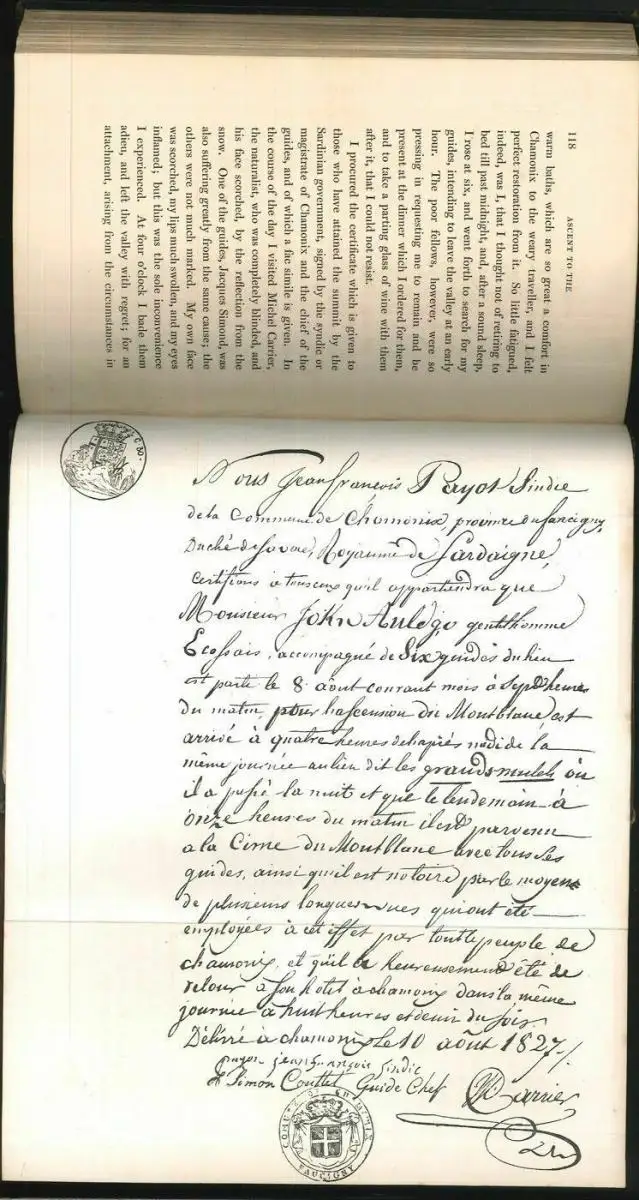 118 ASCENT TO THE
warm baths, which are so great a comfort in
Chamonix to the weary traveller, and I felt
perfect restoration from it. So little fatigued,
indeed, was I, that I thought not of retiring to
bed till past midnight, and, after a sound sleep,
I rose at six, and went forth to search for my
guides, intending to leave the valley at an early
hour. The poor fellows, however, were so
pressing in requesting me to remain and be
present at the dinner which I ordered for them,
and to take a parting glass of wine with them
after it, that I could not resist.
I procured the certificate which is given to
those who have attained the summit by the
Sardinian government, signed by the syndic or
magistrate of Chamonix and the chief of the
guides, and of which a fac simile is given. In
the course of the day I visited Michel Carrier,
the naturalist, who was completely blinded, and
his face scorched, by the reflection from the
snow. One of the guides, Jacques Simond, was
also suffering greatly from the same cause; the
others were not much marked. My own face
was scorched, my lips much swollen, and my eyes
inflamed; but this was the sole inconvenience
I experienced. At four o'clock I bade them
adieu, and left the valley with regret; for an
attachment, arising from the circumstances in
Nous Jean françois Payot Sindic
de la Commune de Chamonix, province du faucigny,
Duché de Savoie, Royaume de Sardaigne,
certifions à tous ceux qu'il appartiendra que
Monsieur John Auldjo gentilhomme
Ecossais, accompagné de Six guides du lieu
est parti le 8 août courant mois à Sept heures
du matin, pour l'ascension du Montblanc, est
arrivé à quatre heures de l'après midi de la
même journée au lieu dit les grands mulets où
il a passé la nuit et que le lendemain à
onze heures du matin il est parvenu
a la Cime du Montblanc avec tous Ses
guides, ainsi qu'il est notoire par le moyen
de plusieurs longues vues qui ont été
employées à cet effet par tout le peuple de
chamonix, et qu'il a heureusement été de
retour à Son hotel à chamonix dans la même
journée à huit heures et demi du Soir.
Délivré à chamonix le 10 août 1827
payot jean françois Sindic
Simon Couttet Guide Chef Carrier
FAUCIGNY